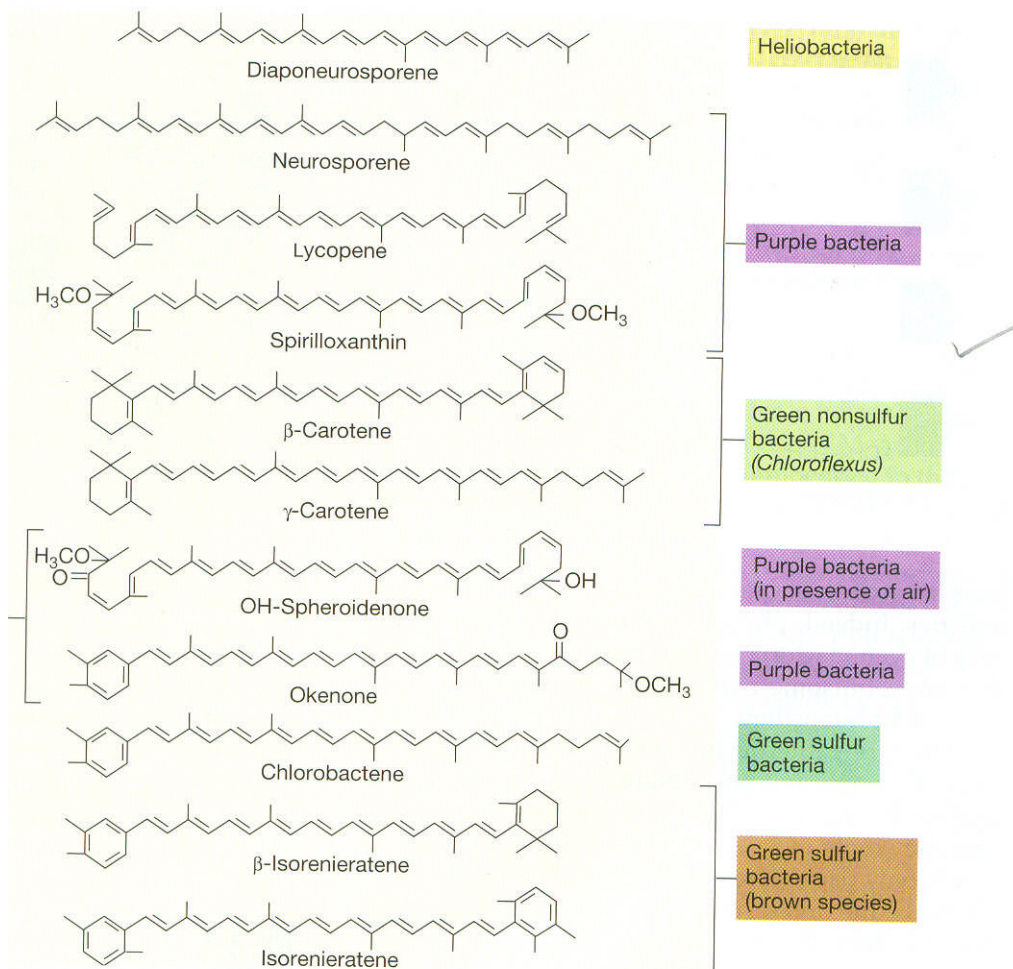 Diaponeurosporene
Heliobacteria
Neurosporene
Lycopene
Purple bacteria
H₃CO
OCH₃
Spirilloxanthin
β-Carotene
Green nonsulfur
bacteria
(Chloroflexus)
γ-Carotene
H₃CO
O
OH
OH-Spheroidenone
Purple bacteria
(in presence of air)
O
OCH₃
Okenone
Purple bacteria
Chlorobactene
Green sulfur
bacteria
β-Isorenieratene
Green sulfur
bacteria
(brown species)
Isorenieratene